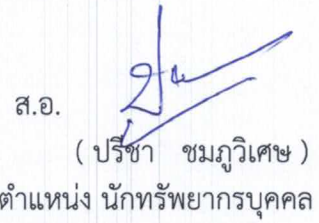 ส.อ.
( ปรีชา ชมภูวิเศษ )
ตำแหน่ง นักทรัพยากรบุคคล